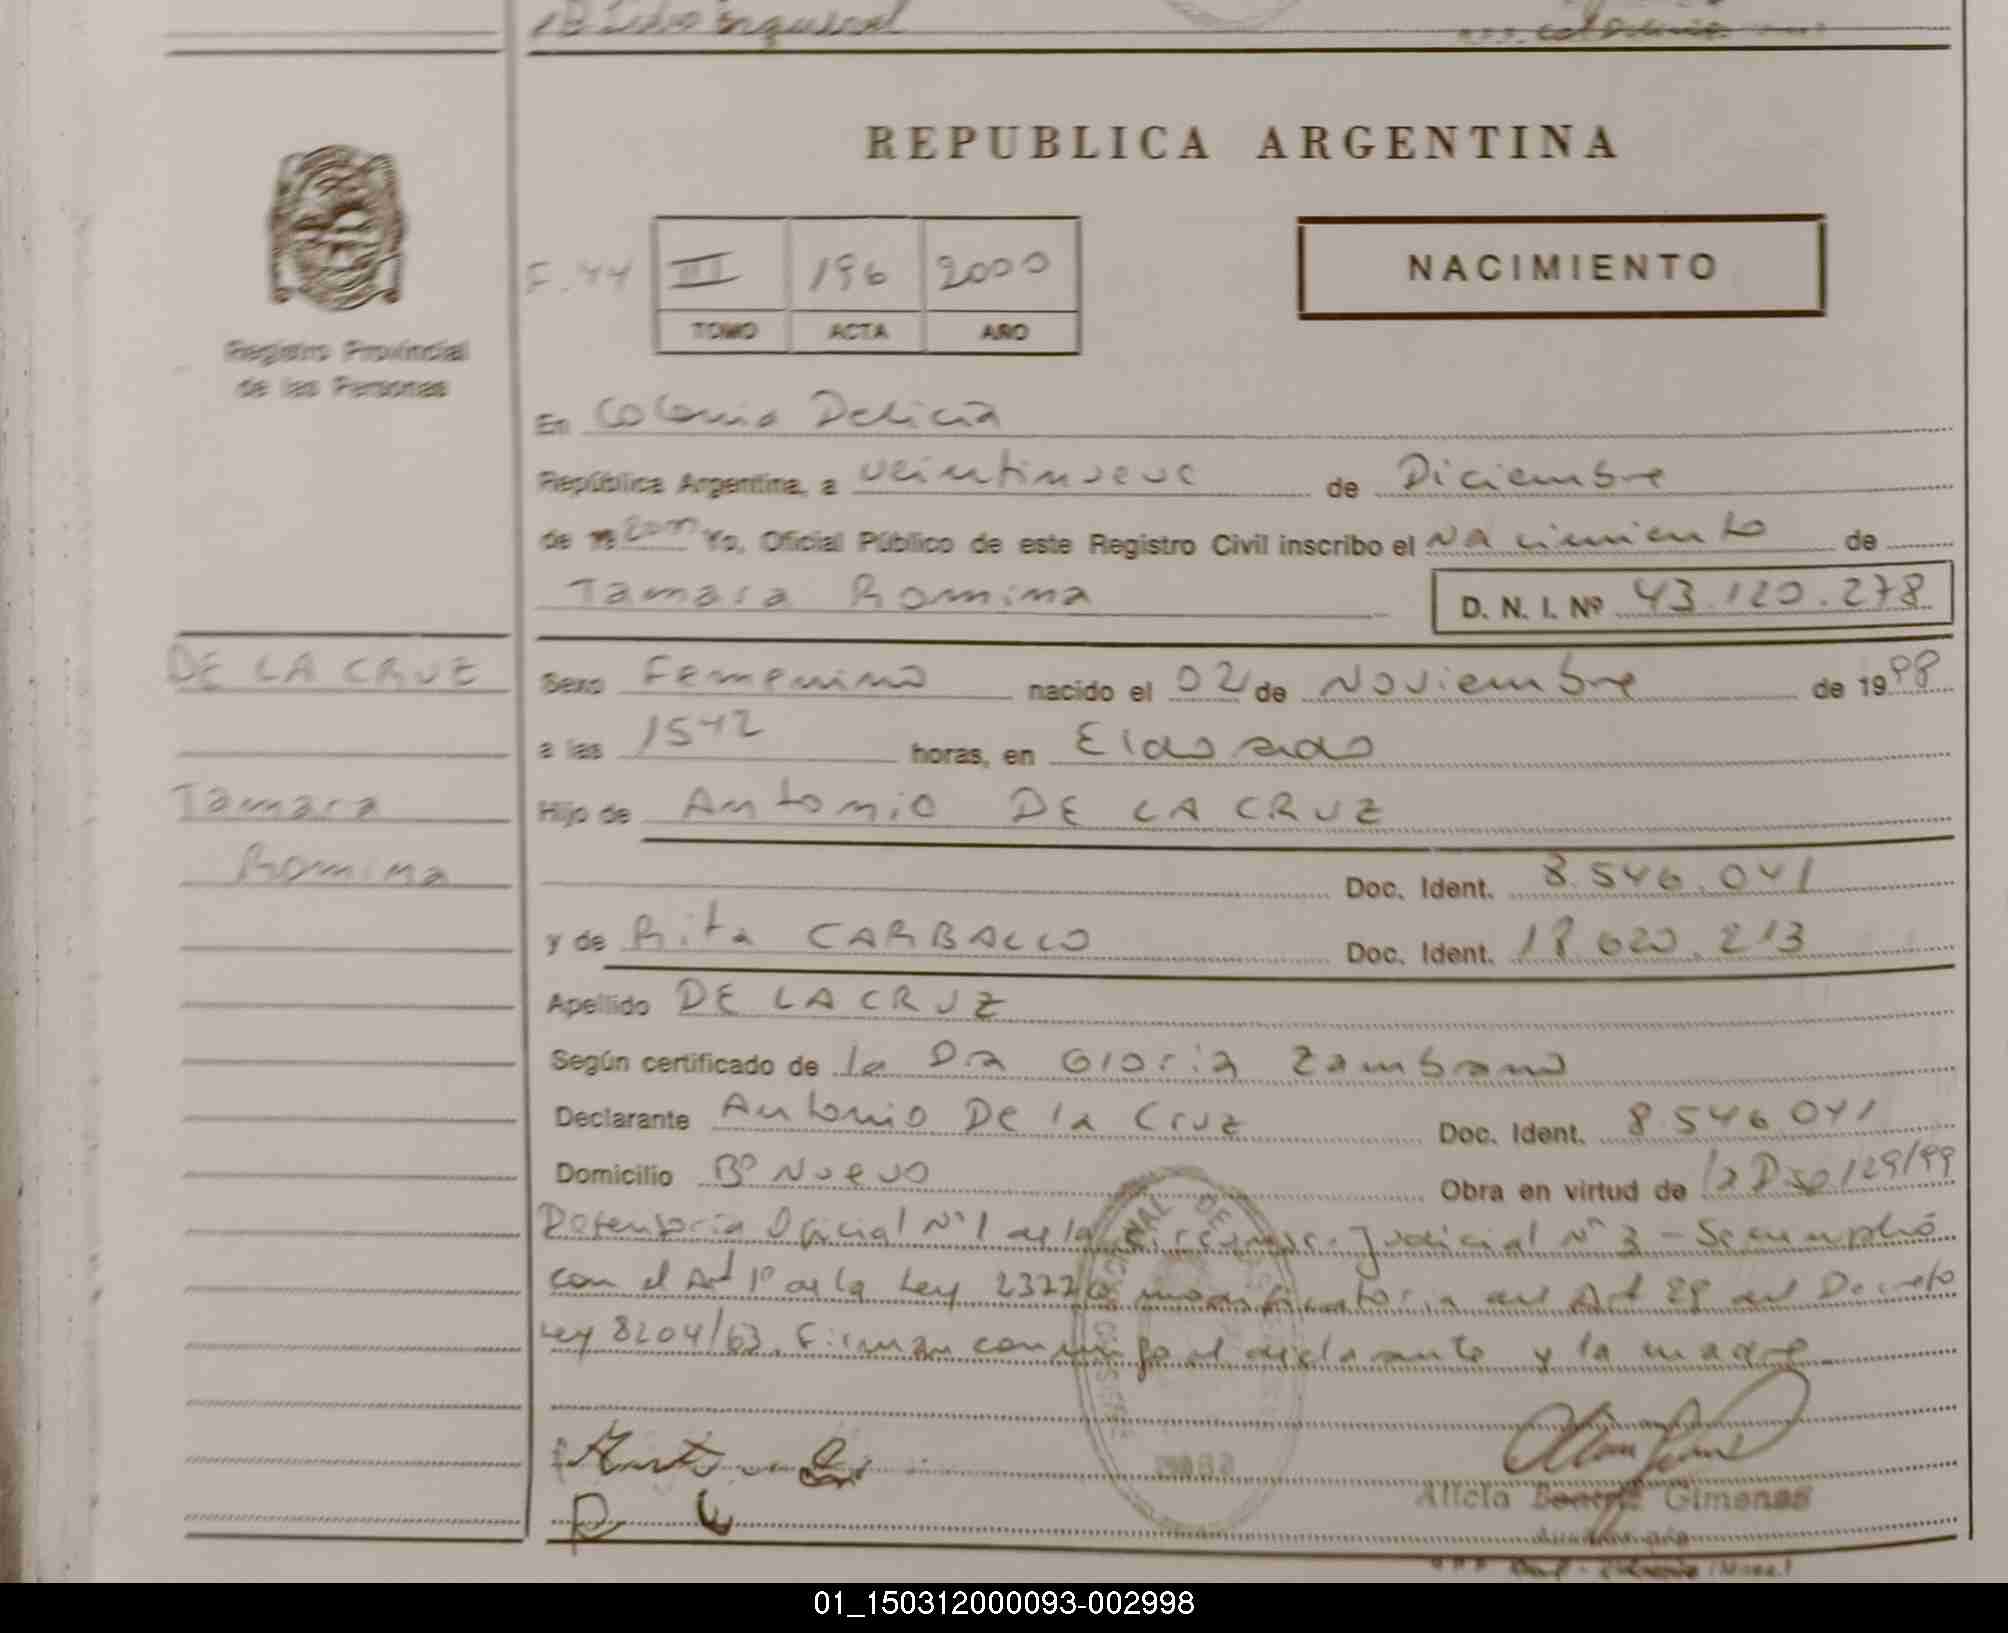 REPUBLICA ARGENTINA
NACIMIENTO
F. 44 III 196 2000
TOMO ACTA AÑO
Registro Provincial
de las Personas
En Colonia Delicia
República Argentina, a veintinueve de Diciembre
de 2000 Yo, Oficial Público de este Registro Civil inscribo el Nacimiento de
Tamara Romina D. N. I. Nº 43.120.278
DE LA CRUZ
Sexo Femenino nacido el 02 de Noviembre de 1998
a las 1542 horas, en Eldorado
Tamara
Hijo de Antonio DE LA CRUZ
Romina
Doc. Ident. 8.546.041
y de Rita CARBALLO Doc. Ident. 18.620.213
Apellido DE LA CRUZ
Según certificado de la Dra Gloria Zambrano
Declarante Antonio De la Cruz Doc. Ident. 8.546.041
Domicilio Bº Nuevo Obra en virtud de la 129/99
Defensoria Oficial Nº 1 de la Judicial Nº 3 - Se cumplió
con el Art 1º de la Ley 23776 modificatoria del Art 28 del Decreto
Ley 8204/63. Firman conmigo el declarante y la madre
Alicia Beatriz Gimenas
01_150312000093-002998